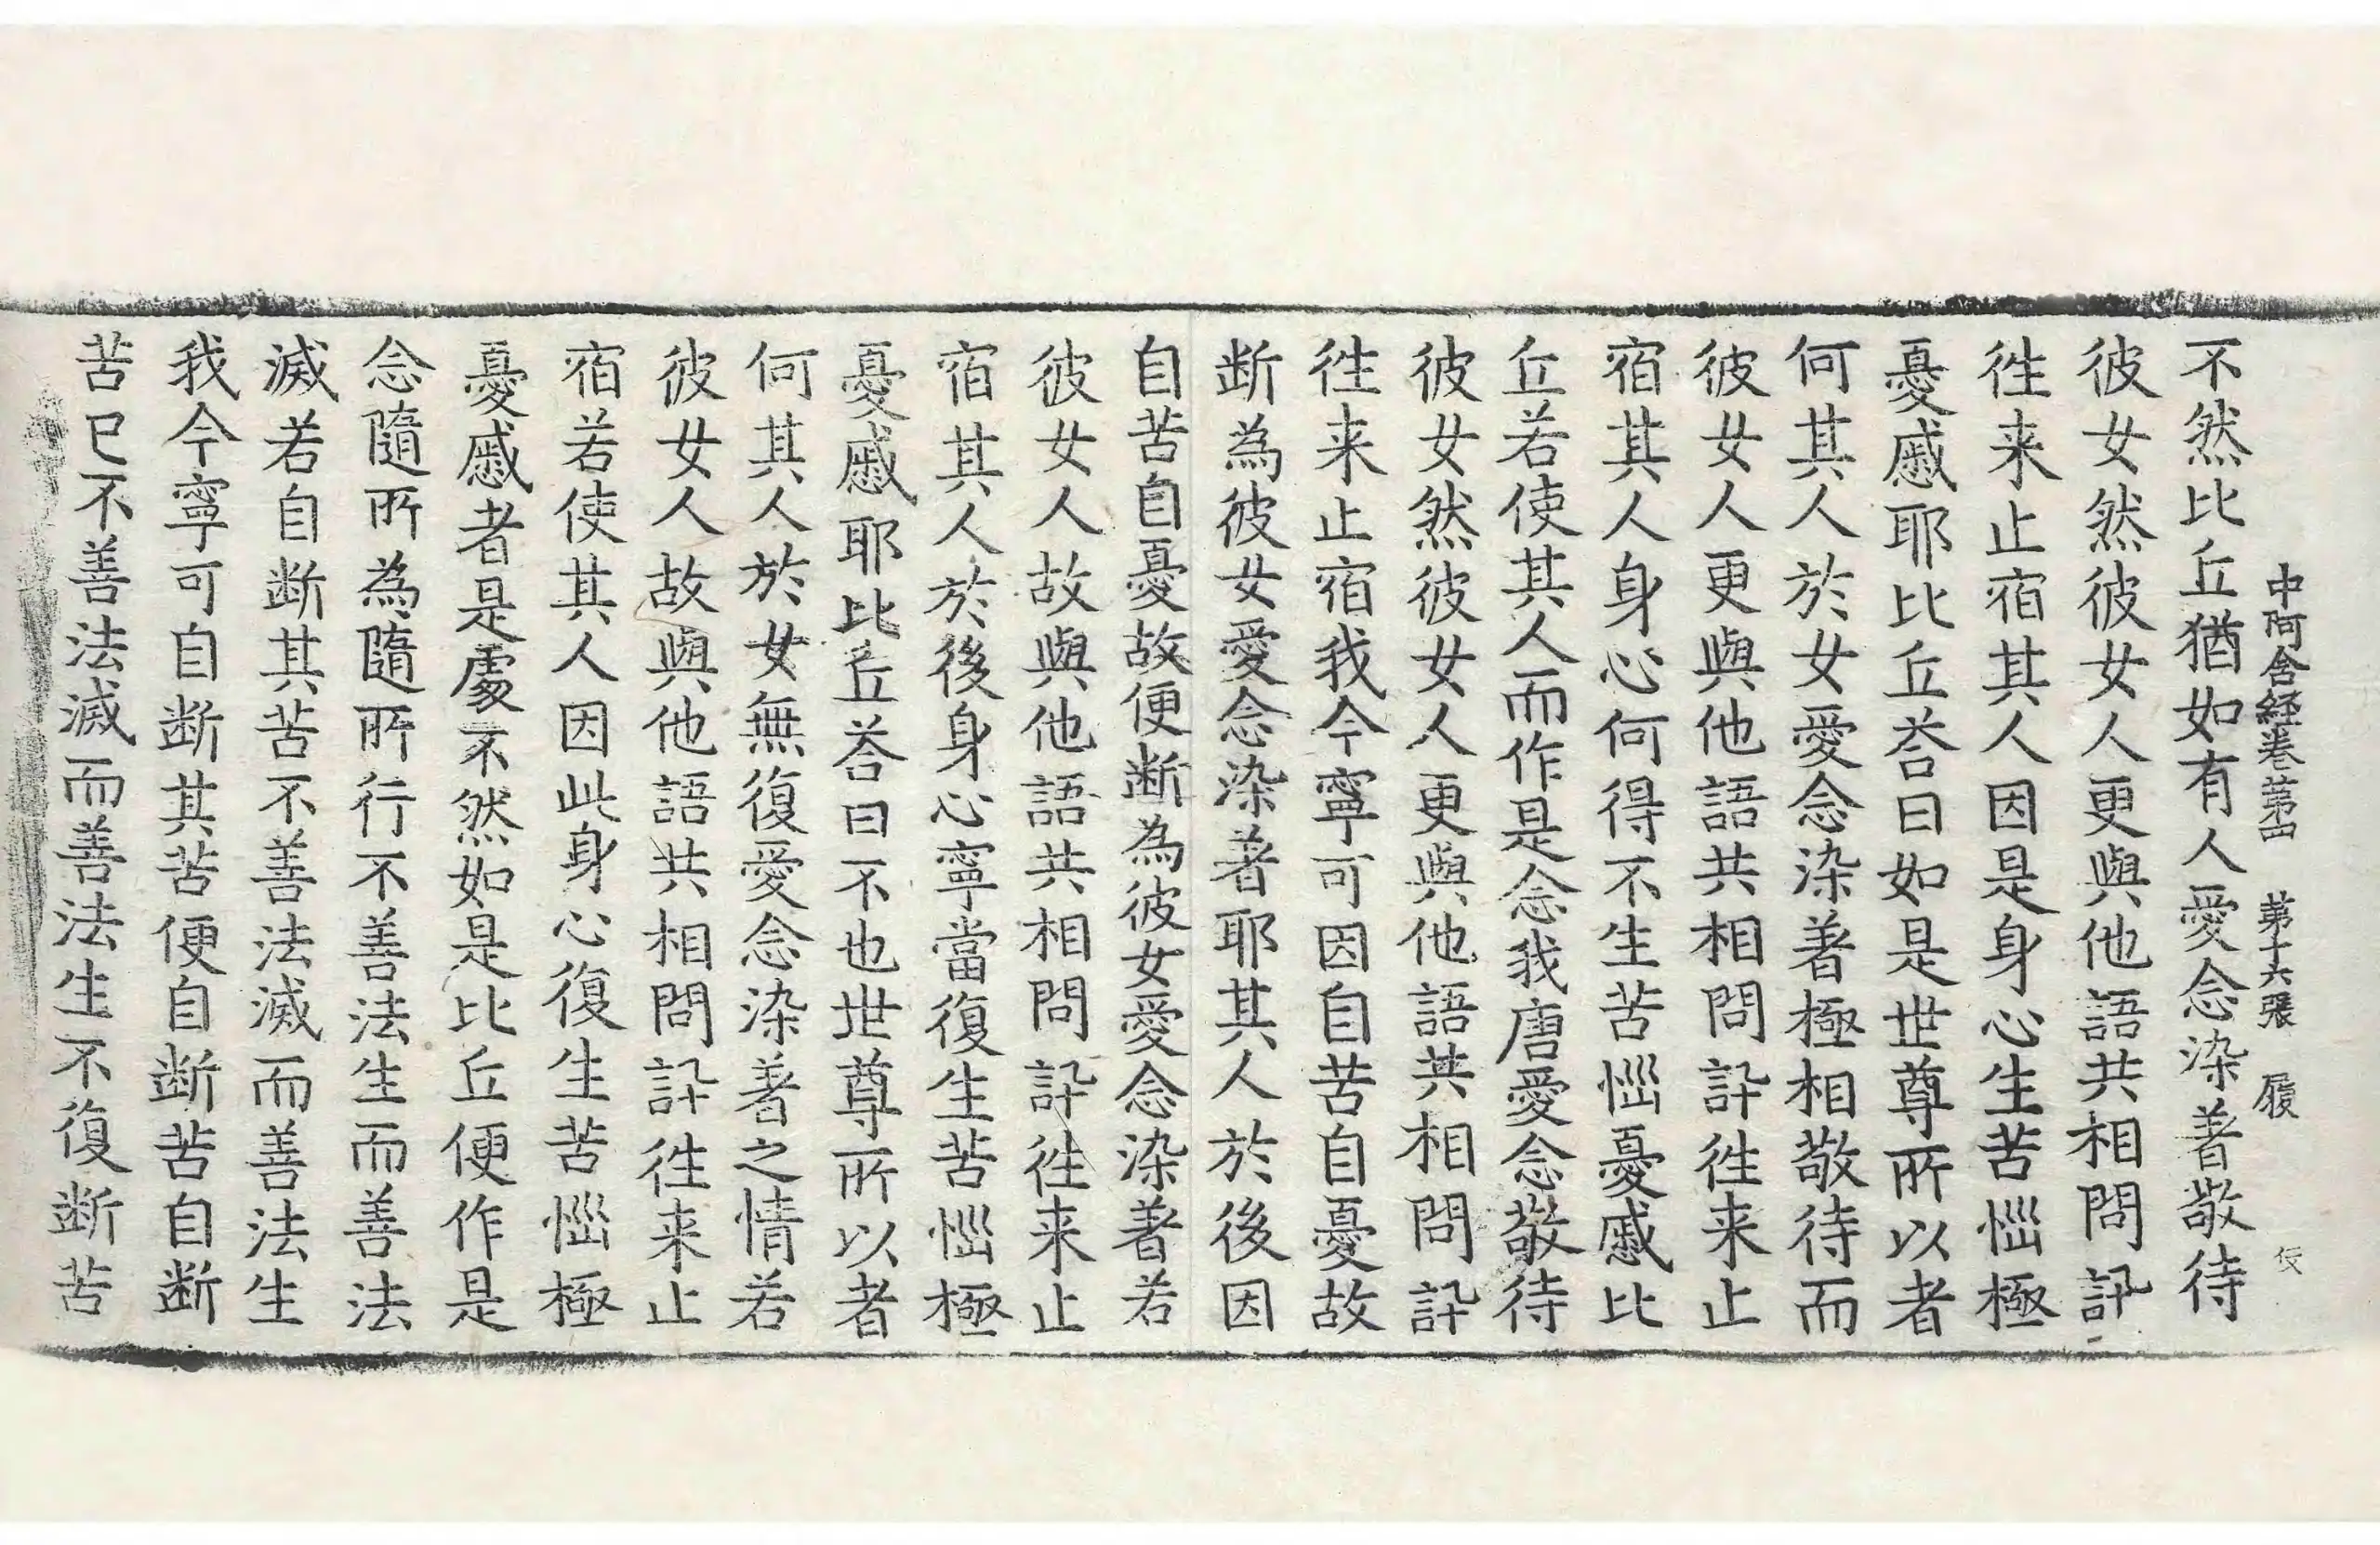 中阿含経巻苐四 苐十六張 履
不然比丘猶如有人愛念染著敬待
彼女然彼女人更與他語共相問訊
徃来止宿其人因是身心生苦惱極
憂慼耶比丘荅曰如是世尊所以者
何其人於女愛念染著極相敬待而
彼女人更與他語共相問訊徃来止
宿其人身心何得不生苦惱憂慼比
丘若使其人而作是念我唐愛念敬待
彼女然彼女人更與他語共相問訊
徃来止宿我今寧可因自苦自憂故
断為彼女愛念染著耶其人於後因
自苦自憂故便断為彼女愛念染著若
彼女人故與他語共相問訊徃来止
宿其人於後身心寧當復生苦惱極
憂慼耶比丘荅曰不也世尊所以者
何其人於女無復愛念染著之情若
彼女人故與他語共相問訊徃来止
宿若使其人因此身心復生苦惱極
憂慼者是處不然如是比丘便作是
念隨所為隨所行不善法生而善法
滅若自断其苦不善法滅而善法生
我今寧可自断其苦便自断苦自断
苦已不善法滅而善法生不復断苦